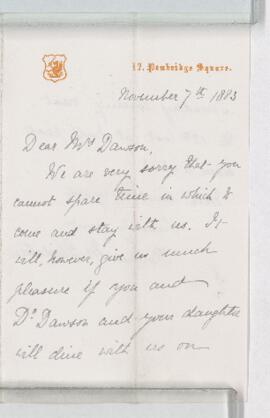 12. Pembridge Square.
November 7th 1883
Dear Mrs Dawson,
We are very sorry that you
cannot spare time in which to
come and stay with us. It
will, however, give us much
pleasure if you and
Dr Dawson and your daughter
will dine with us on